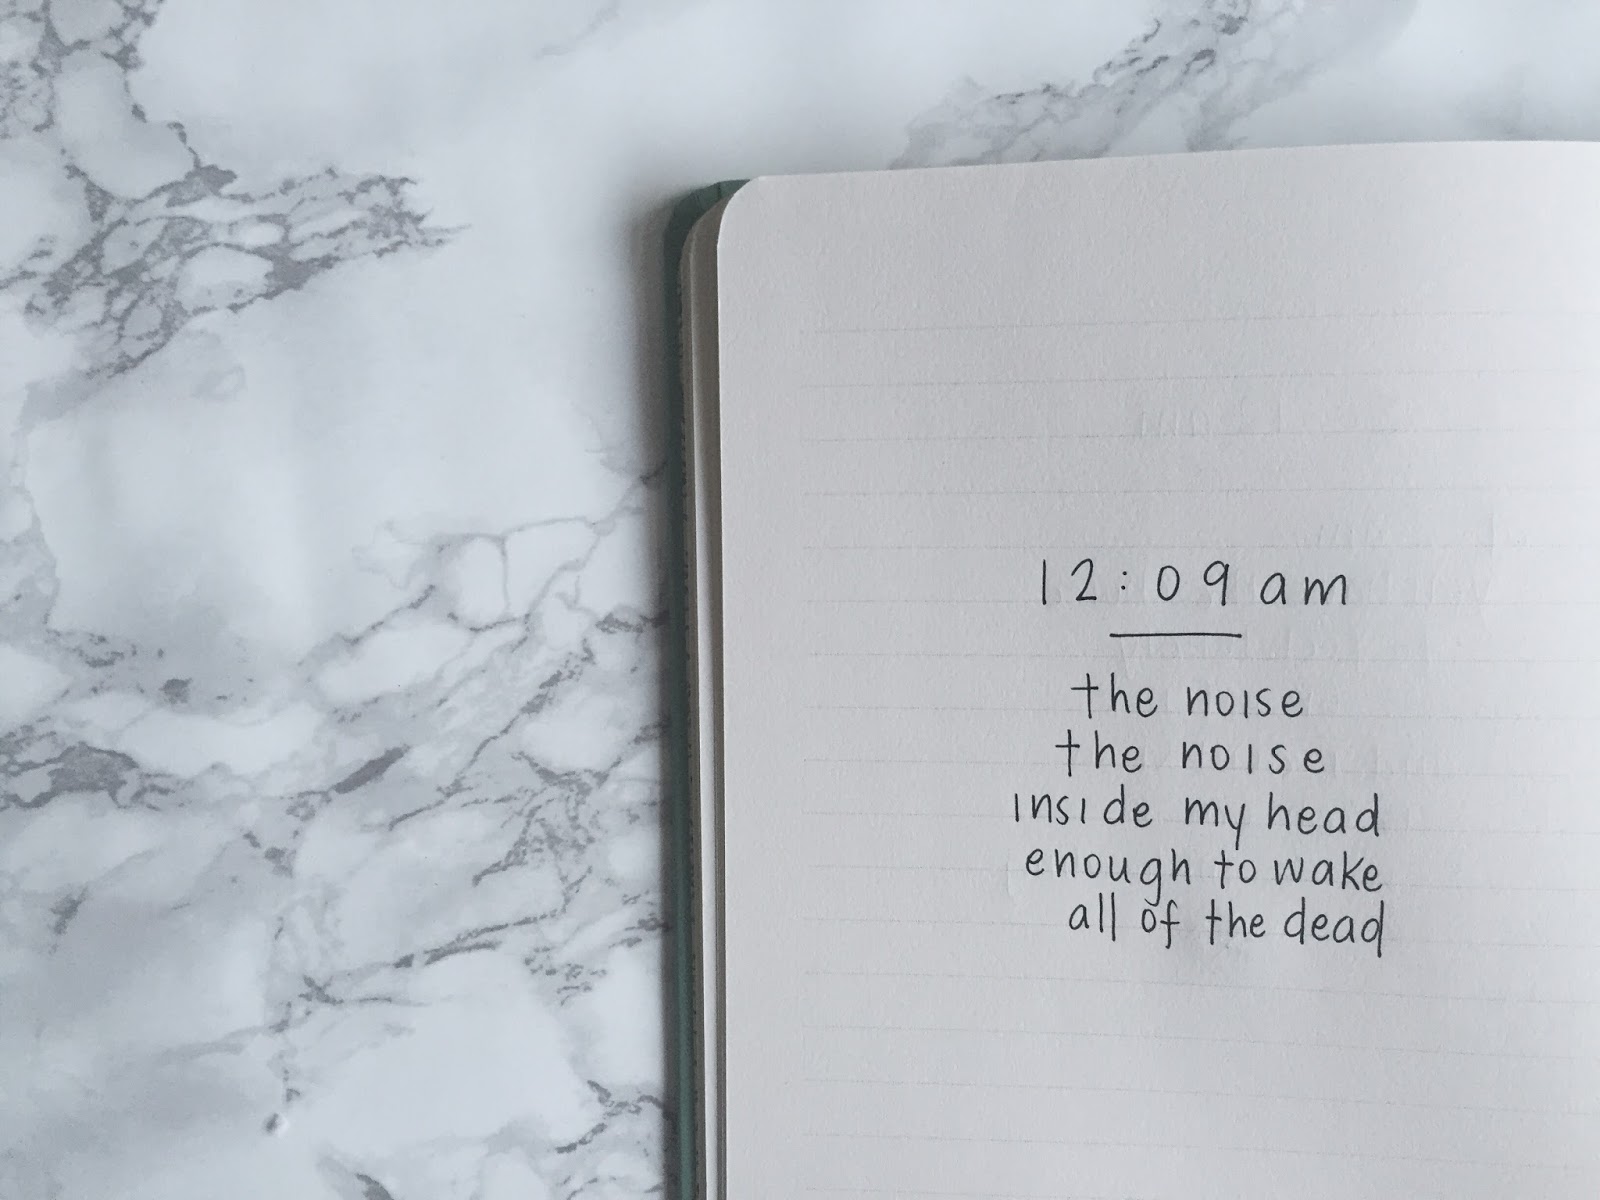 12:09am
the noise
the noise
inside my head
enough to wake
all of the dead